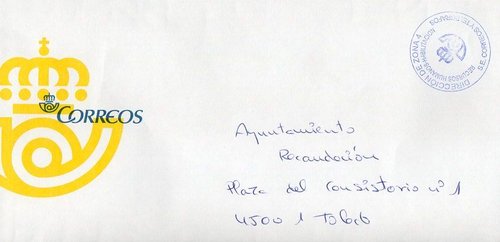 CORREOS
DIRECCIÓN DE ZONA 4
S.E. CORREOS Y TELÉGRAFOS
RECURSOS HUMANOS
Ayuntamiento
Recaudación
Plaza del Consistorio nº 1
45001 Toledo